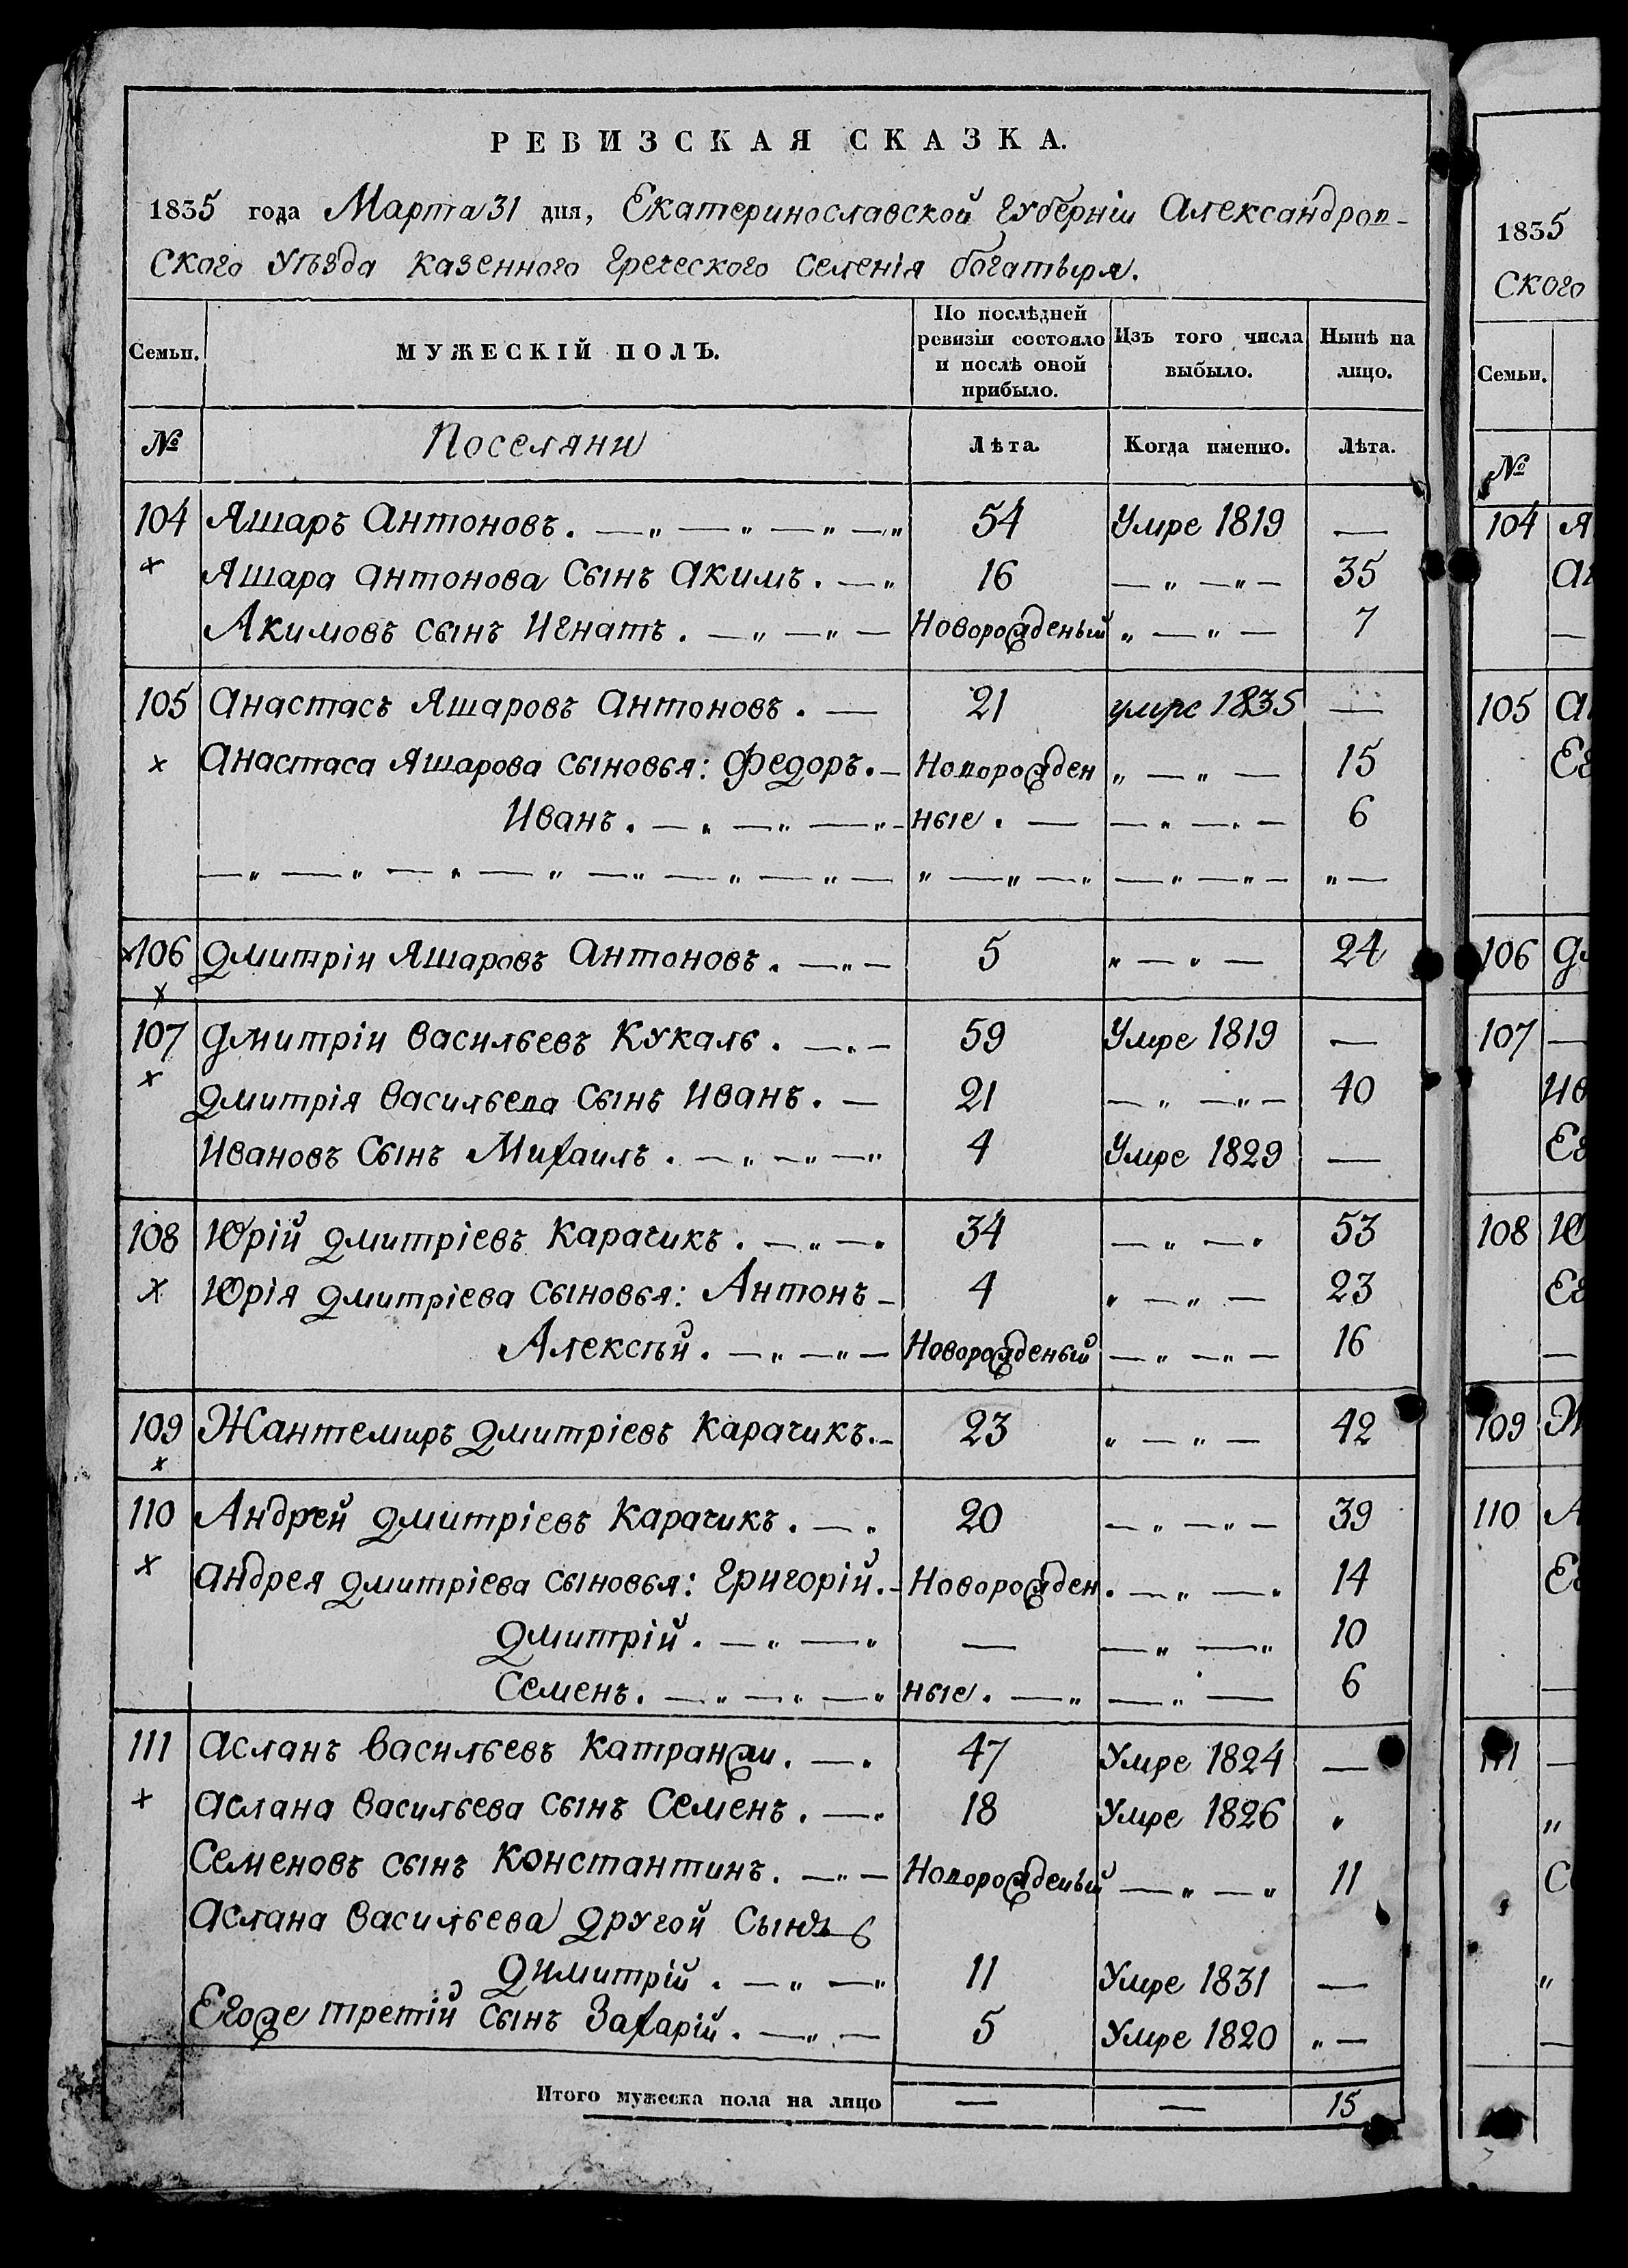 РЕВИЗСКАЯ СКАЗКА.
1835 года Марта 31 дня, Екатеринославской губерніи Александров-
ского уѣзда казенного греческого селенія богатыря.
Семьи. МУЖЕСКІЙ ПОЛЪ. По послѣдней ревизіи состояло и послѣ оной прибыло. Изъ того числа выбыло. Нынѣ на лицо.
№ Поселяни Лѣта. Когда именно. Лѣта.
104 Яшаръ Антоновъ. — „ — „ — „ — „ 54 Умре 1819 —
× Яшара Антонова Сынъ Акимъ. — „ 16 — „ — „ — 35
Акимовъ сынъ Игнатъ. — „ — „ — Новорожденый „ — „ — 7
105 Анастасъ Яшаровъ Антоновъ. — 21 умре 1835 —
× Анастаса Яшарова сыновья: Федоръ. — Новорожден „ — „ — 15
Иванъ. — „ — „ — „ — ные. — — „ — „ — 6
— „ — „ — „ — „ — „ — „ — „ — „ — „ — „ — „ — „ — „ —
×106 Дмитріи Яшаровъ Антоновъ. — „ — 5 „ — „ — 24
×
107 Дмитріи Васильевъ Кукаль. — „ — 59 Умре 1819 —
× Дмитрія Васильева Сынъ Иванъ. — 21 — „ — „ — 40
Ивановъ Сынъ Михаилъ. — „ — „ — „ 4 Умре 1829 —
108 Юрій Дмитріевъ Карачикъ. — „ — „ 34 — „ — „ 53
× Юрія Дмитріева сыновья: Антонъ — 4 „ — „ — 23
Алексѣй. — „ — „ — Новорожденый — „ — „ — 16
109 Жантемиръ Дмитріевъ Карачикъ. — 23 „ — „ — 42
×
110 Андрей Дмитріевъ Карачикъ. — „ 20 — „ — „ — 39
× Андрея Дмитріева сыновья: Григорій. — Новорожден. — „ — „ 14
Дмитрій. — „ — „ — — „ — „ 10
Семенъ. — „ — „ — „ ные. — „ — „ — 6
111 Асланъ Васильевъ Катранжи. — „ 47 Умре 1824 —
× Аслана Васильева сынъ Семенъ. — „ 18 Умре 1826 „
Семеновъ сынъ Константинъ. — „ — Новорожденый — „ — „ 11
Аслана Васильева другой Сынъ
Димитрій. — „ — „ 11 Умре 1831 —
Егоже третій сынъ Захарій. — „ — 5 Умре 1820 „ —
Итого мужеска пола на лицо — — 15
1835
ского
Семьи.
№
104 Я
105
Ег
106
107 —
Ив
Ег
108 Ю
Ег
109 Ж
110 А
Ег
111 —